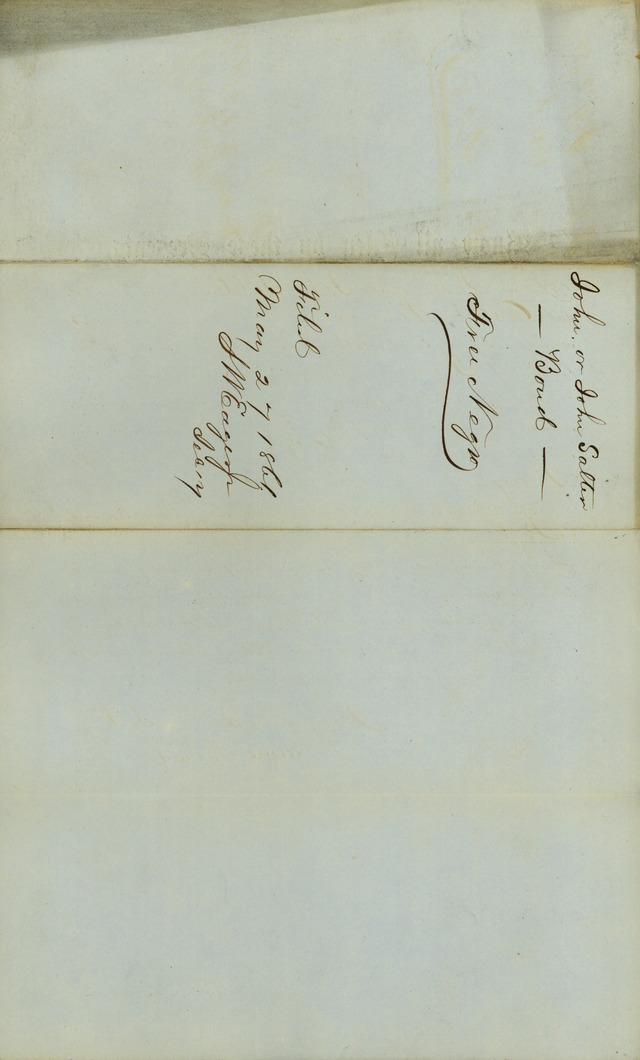 John. or John Salter
— Bond —
Free Negro
Filed
May 27 1861